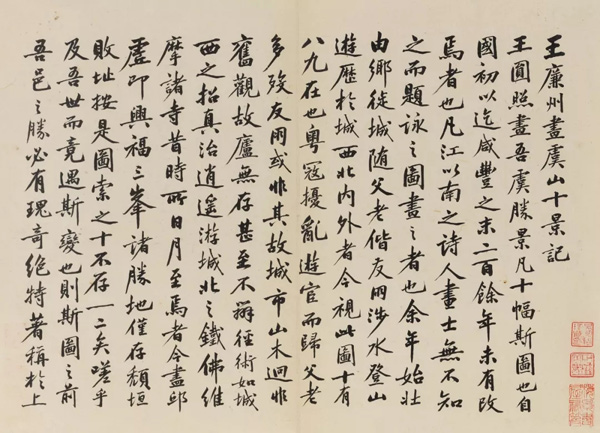 王廉州畫虞山十景記
王圓照畫吾虞勝景凡十幅斯圖也自
國初以迄咸豐之末二百餘年未有改
焉者也凡江以南之詩人畫士無不知
之而題詠之圖畫之者也余年始壯
由鄉徙城隨父老偕友朋涉水登山
遊歷於城西北內外者今視此圖十有
八九在也粵寇擾亂遊宦而歸父老
多歿友朋或非其故城市山木迥非
舊觀故廬無存甚至不辨徑術如城
西之招真治逍遙游城北之鐵佛維
摩諸寺昔時所日月至焉者今盡邱
虛即興福三峯諸勝地僅存頹垣
敗址按是圖索之十不存一二矣嗟乎
及吾世而竟遇斯變也則斯圖之前
吾邑之勝必有瑰奇絕特著稱於上